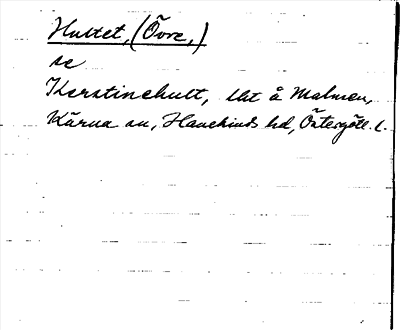 Hultet, (Övre,)
se
Kerstinehult, lht å Malmen,
Kärna sn, Hanekinds hd, Östergötl. l.